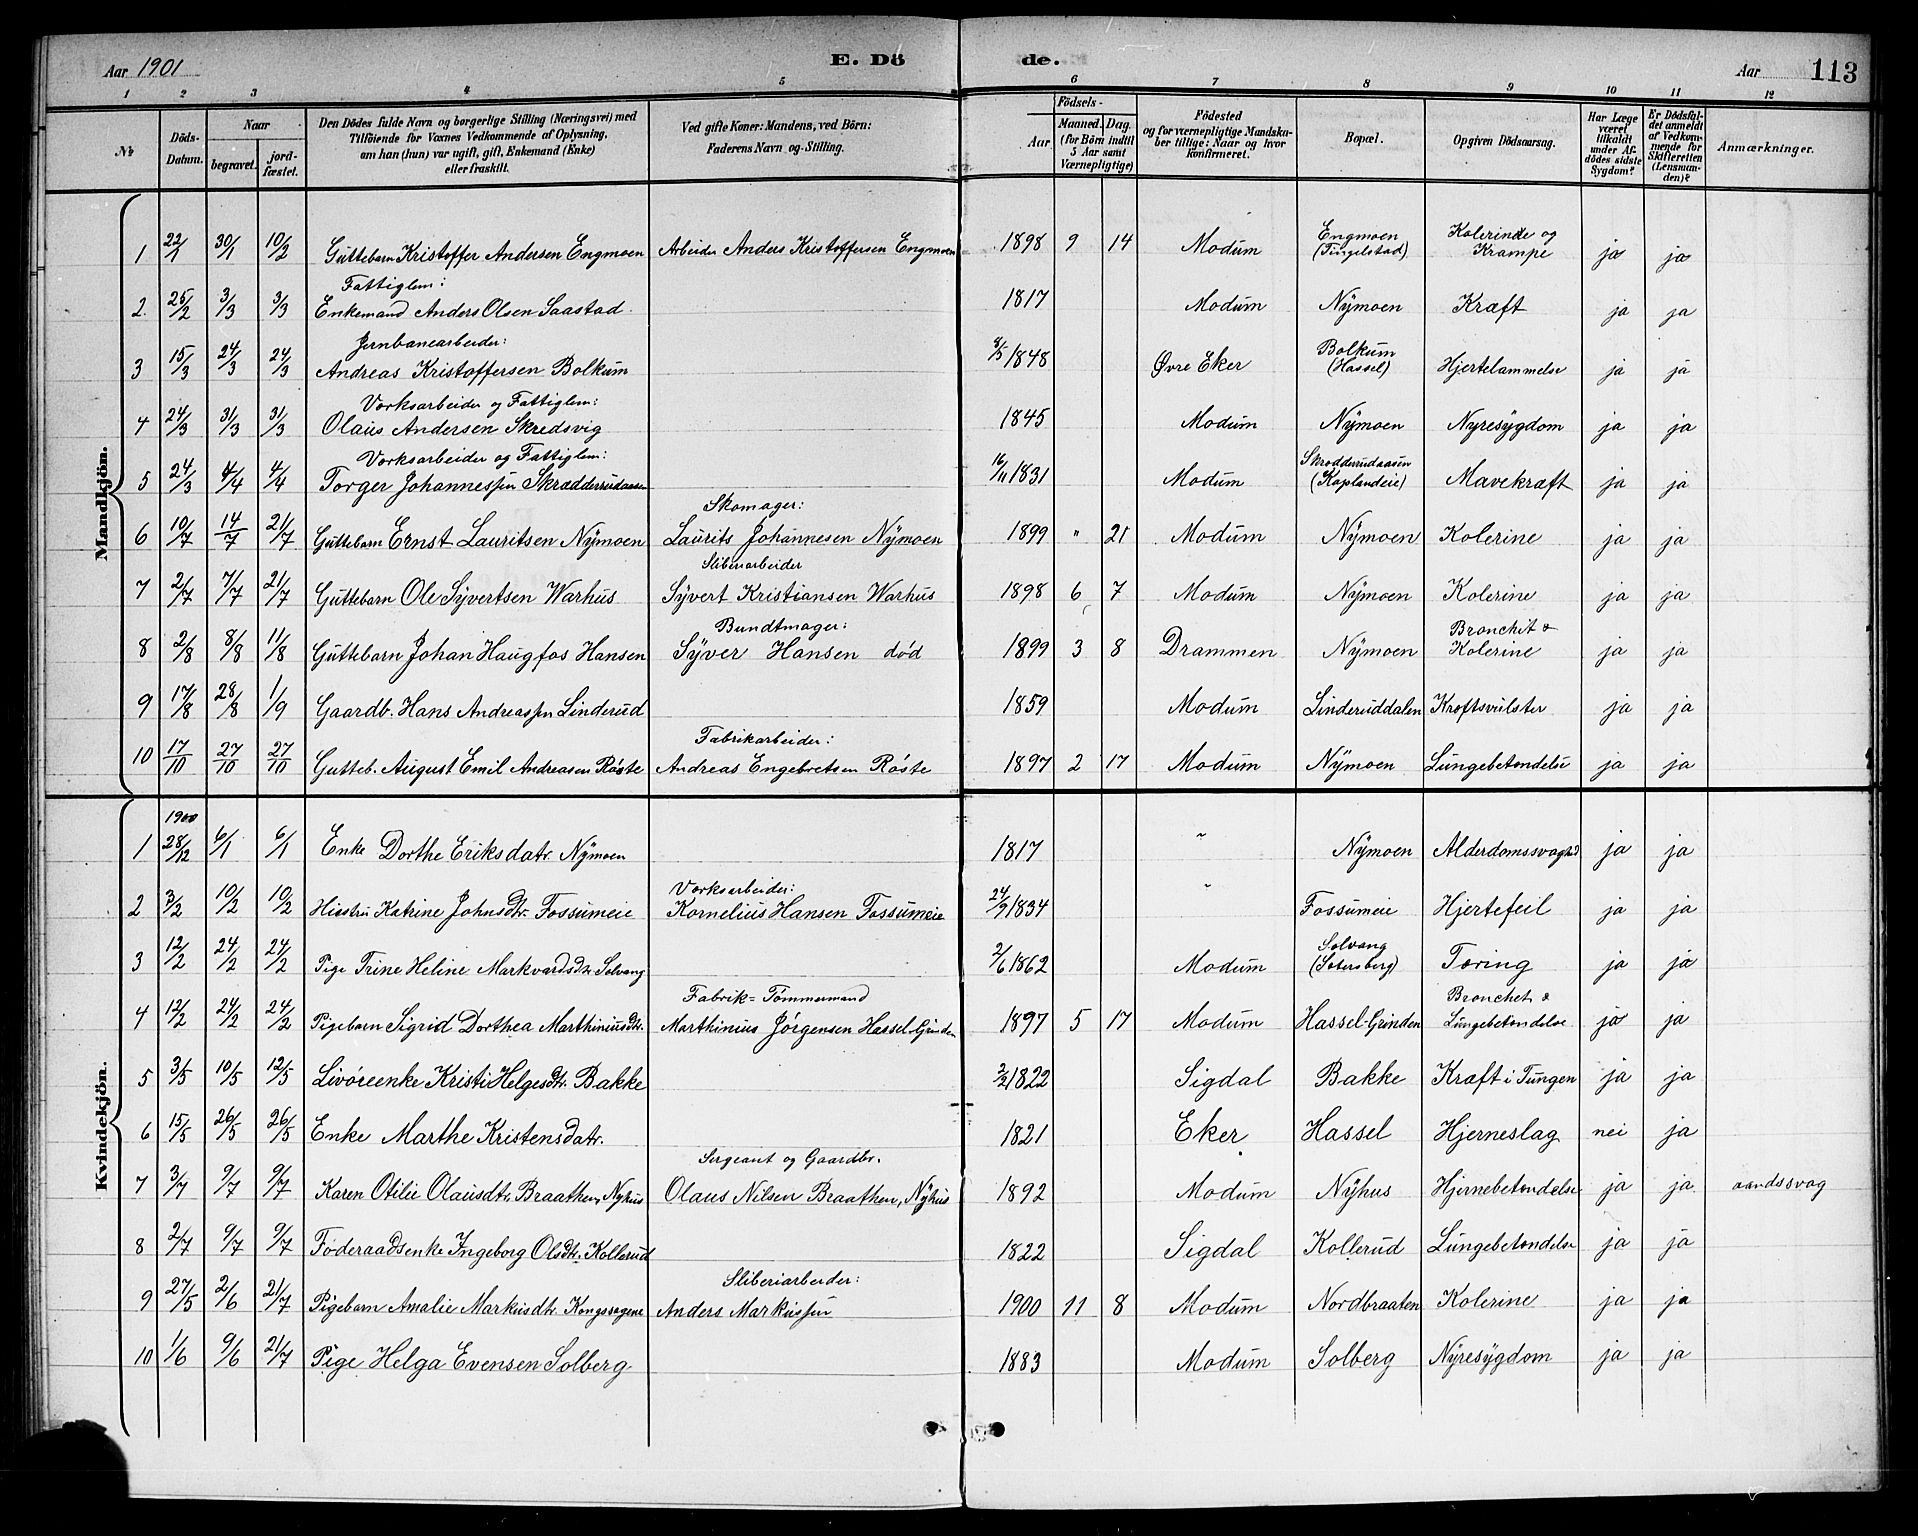 Aar 1901 E. Dö de. Aar 113
1 2 3 4 5 6 7 8 9 10 11 12
№ Döds-Datum. Naar begravet. jordfæstet. Den Dödes fulde Navn og borgerlige Stilling (Næringsvei) med Tilföiende for Voxnes Vedkommende af Oplysning, om han (hun) var ugift, gift, Enkemand (Enke) eller fraskilt. Ved gifte Koner: Mandens, ved Börn: Faderens Navn og Stilling. Födsels- Aar Maaned. Dag. (for Börn indtil 5 Aar samt Værnepligtige) Födested og for værnepligtige Mandskaber tillige: Naar og hvor konfirmeret. Bopæl. Opgiven Dödsaarsag. Har Læge været tilkaldt under Afdödes sidste Sygdom? Er Dödsfaldet anmeldt af Vedkommende for Skifteretten (Lensmanden)? Anmærkninger.
Mandkjön.
1 22/1 30/1 10/2 Guttebarn Kristoffer Andersen Engmoen Arbeider Anders Kristoffersen Engmoen 1898 9 14 Modum Engmoen (Tingelstad) Kolerinde og Krampe ja ja
Fattiglem:
2. 25/2 3/3 3/3 Enkemand Anders Olsen Saastad 1817 Modum Nymoen Kræft ja ja
Jernbanearbeider:
3 15/3 24/3 24/3 Andreas Kristoffersen Bolkum 3/5 1848 Øvre Eker Bolkum (Hassel) Hjertelammelse ja ja
Værksarbeider og Fattiglem:
4 24/3 31/3 31/3 Olaus Andersen Skredsvig 1845 Modum Nymoen Nyresygdom ja ja
Værksarbeider og Fattiglem:
5 24/3 4/4 4/4 Torger Johannessen Skrædderudaasen 16/11 1831 Modum Skrædderudaasen (Kaplandeie) Mavekræft ja ja
Skomager:
6 10/7 14/7 21/7 Guttebarn Ernst Lauritsen Nymoen Laurits Johannesen Nymoen 1899 " 21 Modum Nymoen Kolerine ja ja
Sliberiarbeider
7 2/7 7/7 21/7 Guttebarn Ole Syvertsen Warhus Syvert Kristiansen Warhus 1898 6 7 Modum Nymoen Kolerine ja ja
Bundtmager:
8 2/8 8/8 11/8 Guttebarn Johan Haugfos Hansen Syver Hansen död 1899 3 8 Drammen Nymoen Bronchit & Kolerine ja ja
9 17/8 28/8 1/9 Gaardb. Hans Andreassen Linderud 1859 Modum Linderuddalen Kræftsvulster ja ja
Fabrikarbeider:
10 17/10 27/10 27/10 Gutteb. August Emil Andreasen Röste Andreas Engebretsen Röste 1897 2 17 Modum Nymoen Lungebetændelse ja ja
Kvindekjön.
1900
1 28/12 6/1 6/1 Enke Dorthe Eriksdatr. Nymoen 1817 " Nymoen Alderdomssvaghed ja ja
Værksarbeider:
2 3/2 10/2 10/2 Hustru Katrine Johnsdtr. Fossumeie Kornelius Hansen Fossumeie 24/9 1834 " Fossumeie Hjertefeil ja ja
3 12/2 24/2 24/2 Pige Trine Heline Markvardsdtr. Solvang 2/6 1862 Modum Solvang (Sætersberg) Tæring ja ja
Fabrik-Tömmermand
4 12/2 24/2 24/2 Pigebarn Sigrid Dorthea Marthiniusdtr. Marthinius Jörgensen Hassel-Grinden 1897 5 17 Modum Hassel-Grinden Bronchet & Lungebetændelse ja ja
5 3/5 10/5 12/5 Livöreenke Kristi Helgesdtr. Bakke 2/2 1822 Sigdal Bakke Kræft i Tungen ja ja
6 15/5 26/5 26/5 Enke Marthe Kristensdatr. 1821 Eker Hassel Hjerneslag nei ja
Sergeant og Gaardbr.
7 3/7 9/7 9/7 Karen Otilie Olausdtr. Braathen, Nyhus Olaus Nilsen Braathen, Nyhus 1892 Modum Nyhus Hjernebetændelse ja ja aandssvag
8 2/7 9/7 9/7 Föderaadsenke Ingeborg Olsdtr. Kollerud 1822 Sigdal Kollerud Lungebetændelse ja ja
Sliberiarbeider:
9 27/5 2/6 21/7 Pigebarn Amalie Markusdtr. Kongssagene Anders Markussen 1900 11 8 Modum Nordbraaten Kolerine ja ja
10 1/6 9/6 21/7 Pige Helga Evensen Solberg 1883 Modum Solberg Nyresygdom ja ja